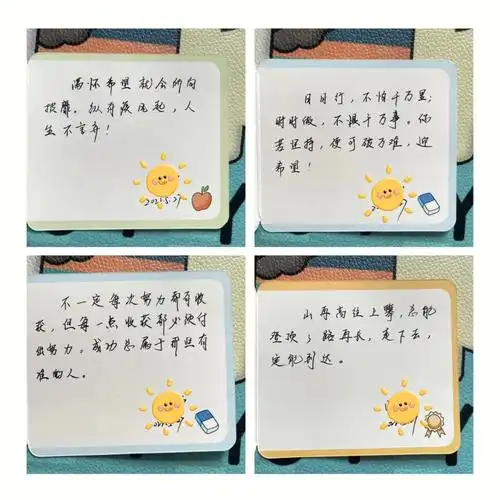 满怀希望就会所向
披靡。纵有疾风起，人
生不言弃！
2021.5.27
日日行，不怕千万里；
时时做，不惧千万事。何
苦坚持，便可破万难，迎
希望！
不一定每次努力都有收
获，但每一点收获都必须付
出努力。成功总属于那些有
准备的人。
山再高往上攀，总能
登顶；路再长，走下去，
定能到达。